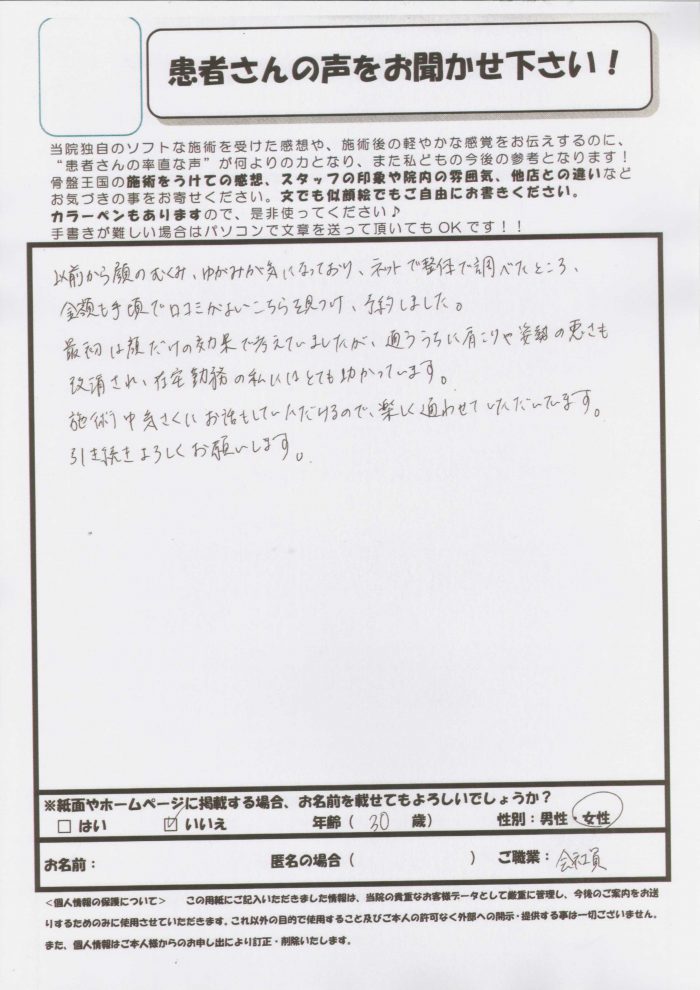 患者さんの声をお聞かせ下さい！
当院独自のソフトな施術を受けた感想や、施術後の軽やかな感覚をお伝えするのに、
“患者さんの率直な声”が何よりの力となり、また私どもの今後の参考となります！
骨盤王国の施術をうけての感想、スタッフの印象や院内の雰囲気、他店との違いなど
お気づきの事をお寄せください。文でも似顔絵でもご自由にお書きください。
カラーペンもありますので、是非使ってください♪
手書きが難しい場合はパソコンで文章を送って頂いてもOKです！！
以前から顔のむくみ、ゆがみが気になっており、ネットで整体で調べたところ、
金額も手頃で口コミがよいこちらを見つけ、予約しました。
最初は顔だけの効果で考えていましたが、通ううちに肩こりや姿勢の悪さも
改善され、在宅勤務の私にはとても助かっています。
施術中気さくにお話もしていただけるので、楽しく通わせていただいています。
引き続きよろしくお願いします。
※紙面やホームページに掲載する場合、お名前を載せてもよろしいでしょうか？
□ はい ☑ いいえ 年齢（ 30 歳） 性別：男性・女性
お名前： 匿名の場合（ ） ご職業： 会社員
＜個人情報の保護について＞ この用紙にご記入いただきました情報は、当院の貴重なお客様データとして厳重に管理し、今後のご案内をお送
りするためのみに使用させていただきます。これ以外の目的で使用すること及びご本人の許可なく外部への開示・提供する事は一切ございません。
また、個人情報はご本人様からのお申し出により訂正・削除いたします。